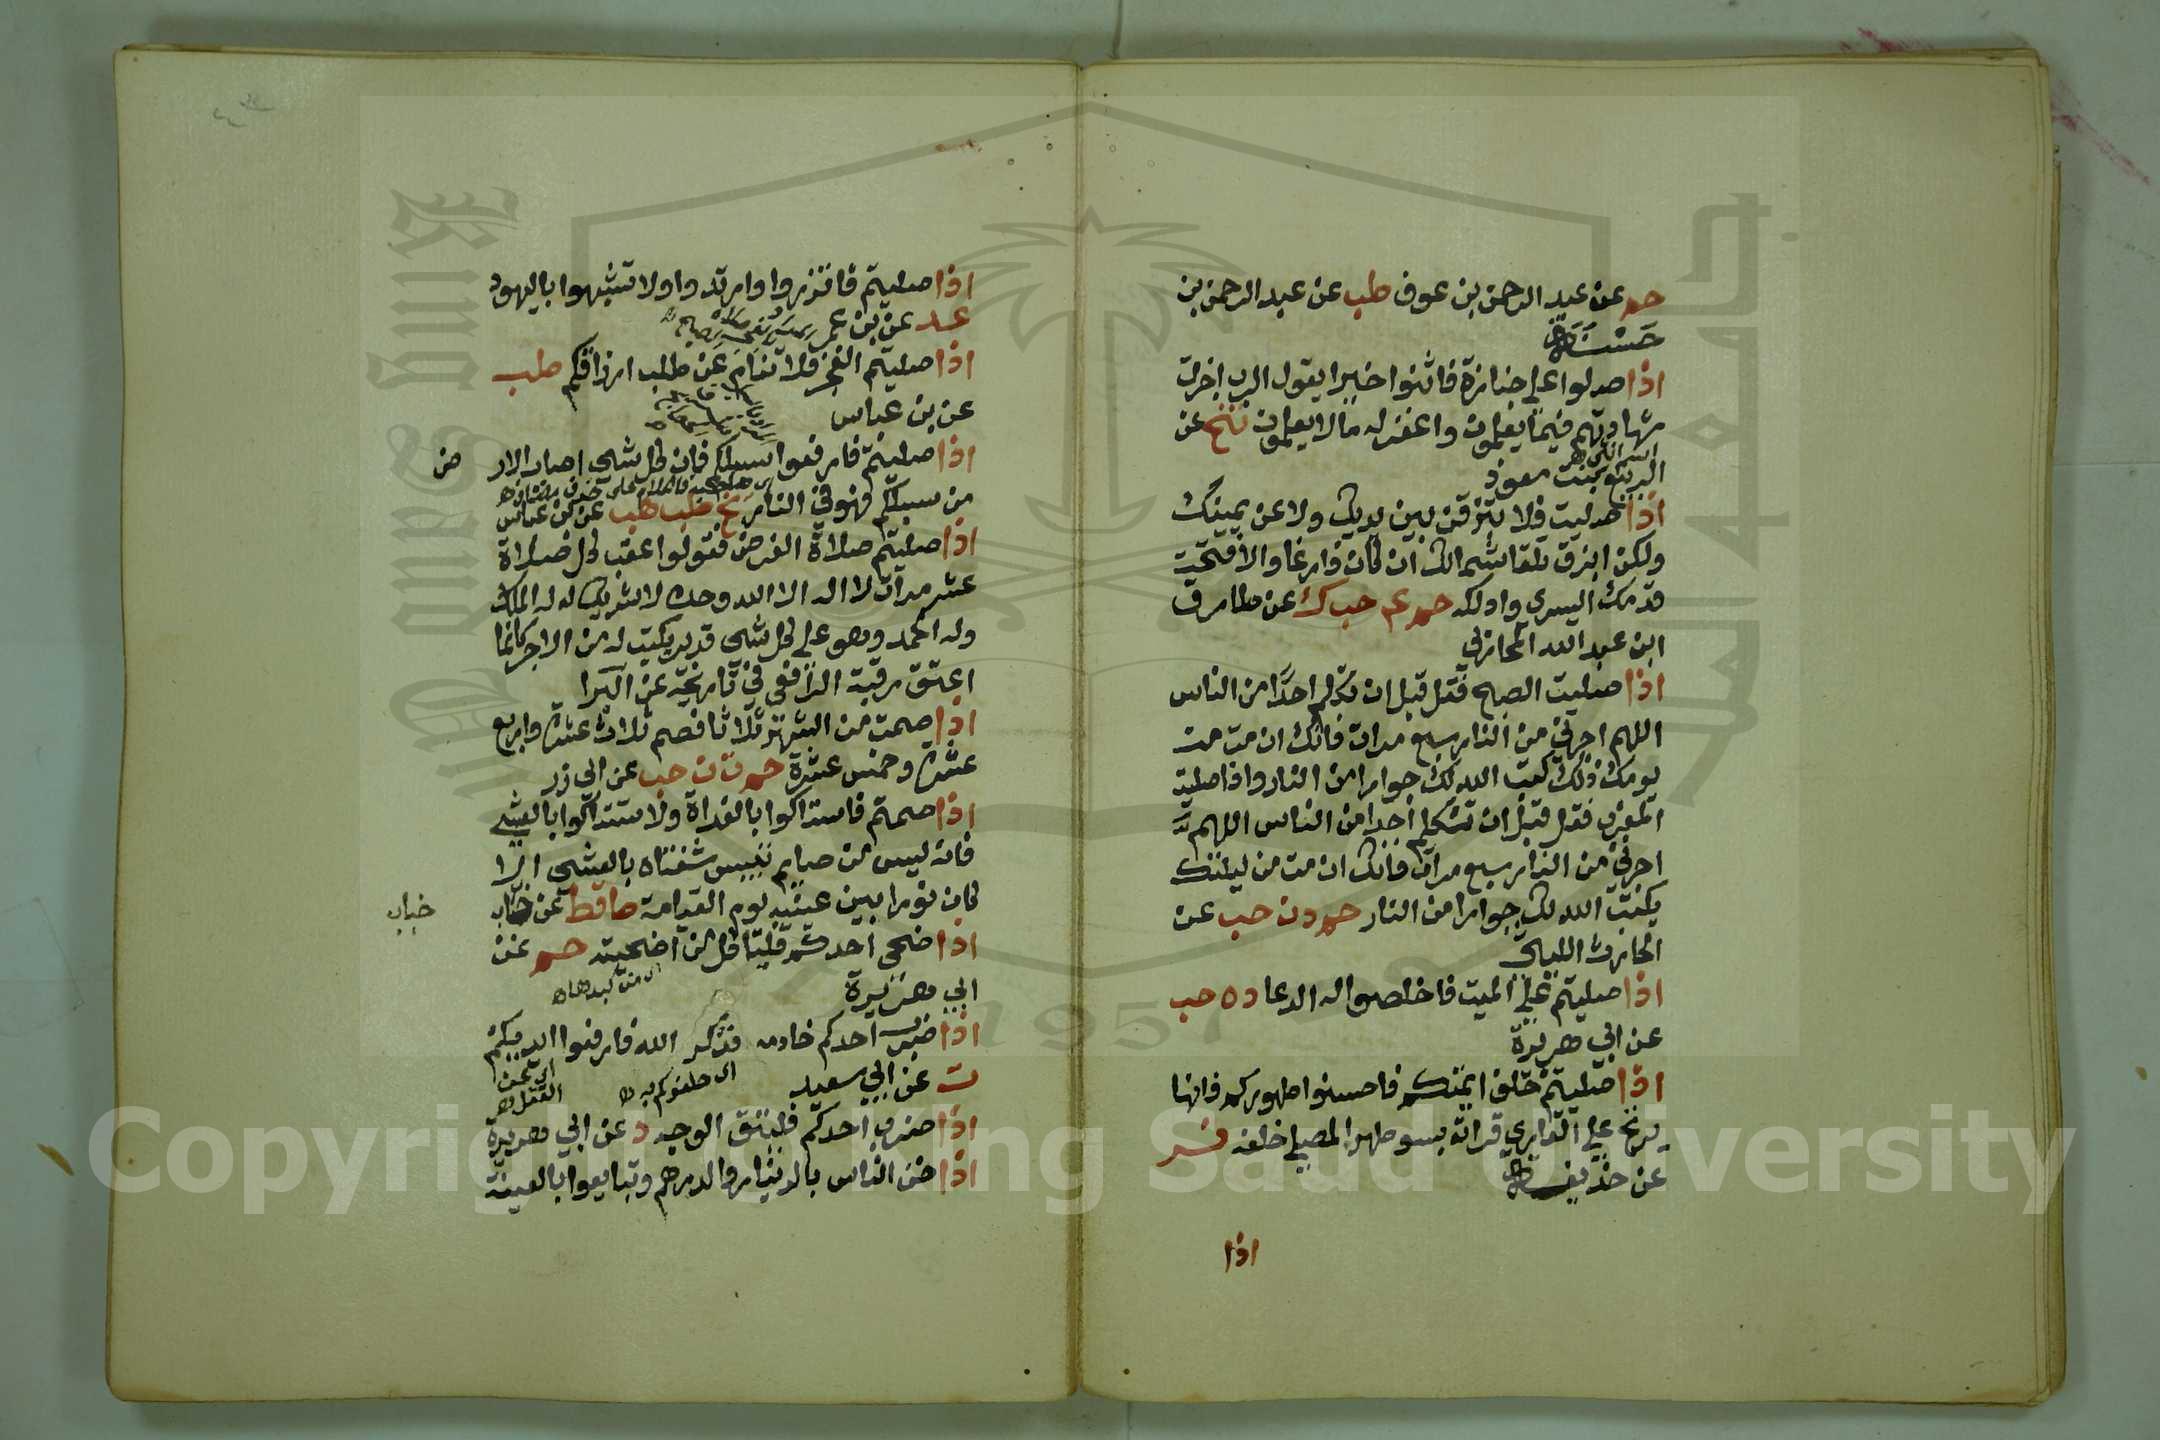 حم عن عبد الرحمن بن عوف طب عن عبد الرحمن بن
حسنة
اذا صلوا على جنازة فاثنوا خيرا يقول الرب اجزت
شهادتهم فيما يعلمون واغفر له مالا يعلمون تخ عن
الربيع بنت معوذ
اذا صليت فلا تبزقن بين يديك ولا عن يمينك
ولكن ابزق تلقا شمالك ان كان فارغا والا فتحت
قدمك اليسرى وادلكه حم عم حب ك عن طارق
ابن عبد الله المحاربي
اذا صليت الصبح فقل قبل ان تكلم احدا من الناس
اللهم اجرني من النار سبع مرات فانك ان مت من
يومك ذلك كتب الله لك جوارا من النار واذا صليت
المغرب فقل قبل ان تتكلم احدا من الناس اللهم
اجرني من النار سبع مرات فانك ان مت من ليلتك
يكتب الله لك جوارا من النار حم د ن حب عن
الحارث التيمي
اذا صليتم على الميت فاخلصوا له الدعا د ه حب
عن ابي هريرة
اذا صليتم خلف ايمتكم فاحسنوا طهوركم فانما
يرتج على القاري قراته بسو طهر المصلي خلفه فر
عن حذيفة
اذا
اذا صليتم فاتزروا وارتدوا ولا تشبهوا باليهود
عد عن بن عمر
اذا صليتم الفجر فلا تنام عن طلب ارزاقكم طب
عن بن عباس
اذا صليتم فارفعوا سبلكم فان كل شي اصاب الار
ض
من سبلكم فهو في النار تخ طب هب عن بن عباس
اذا صليتم صلاة الفرض فقولوا عقب كل صلاة
عشر مرات لا اله الا الله وحده لا شريك له له الملك
وله الحمد وهو على كل شي قدير يكتب له من الاجر كانما
اعتق رقبة الرافعي في تاريخه عن البرا
اذا صمت من الشهر ثلاثا فصم ثلاث عشرة واربع
عشرة وخمس عشرة حم ت ن حب عن ابي ذر
اذا صمتم فاستاكوا بالغداة ولا تستاكوا بالعشي
فانه ليس من صايم تيبس شفتاه بالعشي الا
كان نورا بين عينيه يوم القيامة طب قط عن خباب
خباب
اذا ضحى احدكم فلياكل من اضحيته حم عن
ابي هريرة
اي من كبدها
اذا ضرب احدكم خادمه فذكر الله فارفعوا ايديكم
ت عن ابي سعيد
اذا ضرب احدكم فليتق الوجه د عن ابي هريرة
اذا ضن الناس بالدينار والدرهم وتبايعوا بالعينة
Copyright © King Saud University
1957